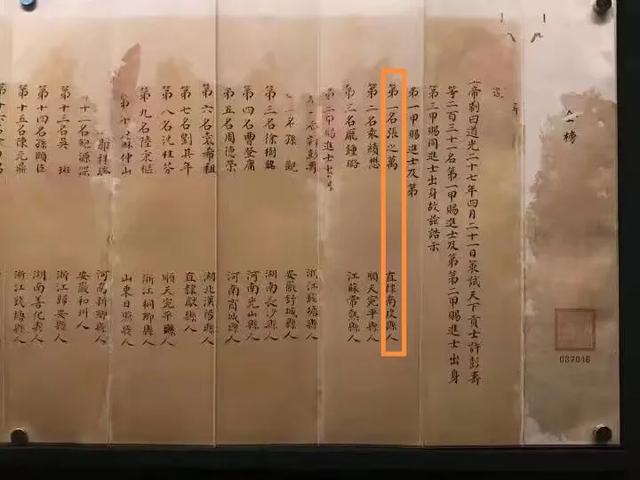 榜
帝制曰道光二十七年四月二十一日策試天下貢士許彭壽
等二百三十一名第一甲賜進士及第第二甲賜進士出身
第三甲賜同進士出身故茲誥示
第一甲賜進士及第
第一名張之萬 直隸南皮縣人
第二名袁績懋 順天宛平縣人
第三名龐鍾璐 江蘇常熟縣人
第二甲賜進士出身
名許彭壽 浙江錢塘縣人
名孫觀 安徽舒城縣人
第三名徐樹銘 湖南長沙縣人
第四名曹登庸 河南光山縣人
第五名周德榮 河南商城縣人
第六名袁希祖 湖北漢陽縣人
第七名劉其年 直隸獻縣人
第八名沈桂芬 順天宛平縣人
第九名陸秉樞 浙江桐鄉縣人
第十名蘇仲山 山東日照縣人
郭祥瑞 河南新鄉縣人
十二名鮑源深 安徽和州人
第十三名吳 浙江歸安縣人
第十四名孫頤臣 湖南善化縣人
第十五名陳元鼎 浙江錢塘縣人
037016